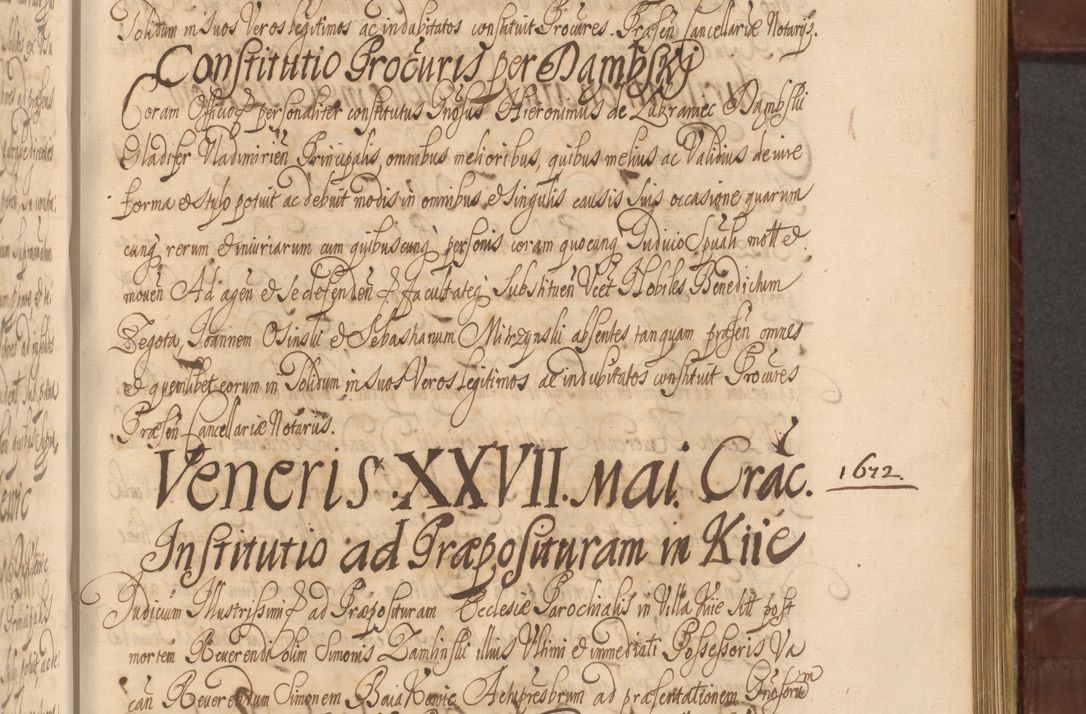 Solidum in suos Veros legitimos ac indubitatos constituit Procures. Præsen Cancellariæ Notarijs.
Constitutio Procuris per Dambskj
Coram Officioq personaliter constitutus Gnosus Hieronimus de Lubraniec Dambski
Gladifer Vladimirien Principalis, omnibus melioribus, quibus melius ac Validius de iure
forma et stylo potuit ac debuit modis in omnibus et singulis causis suis occasione quarum
cunq rerum et iniuriarum cum quibuscunq personis coram quocunq Iudicio Spuali mott et
moven Ad agen et se defenden q facultateq Substituen Vcet Nobiles Benedictum
Zegota, Ioannem Osinski et Sebastianum Mitrzynski absentes tanquam præsen omnes
et quemlibet eorum in Solidum in suos Veros legitimos ac indubitatos constituit Procures
Præsen Cancellariæ Notarius.
Veneris. XXVII. Mai. Crac. 1672.
Institutio ad Præposituram in Kiie
Iudicum Illustrissimq ad Præposituram Ecclesiæ Parochialis in Villa Kiie sitt post
mortem Reverendi olim Simonis Zamlinski illius Vltimi et immediati Possessoris Va
can Reverendum Simonem Baia Kowic Archipresbrum ad præsentationem Gnosorum